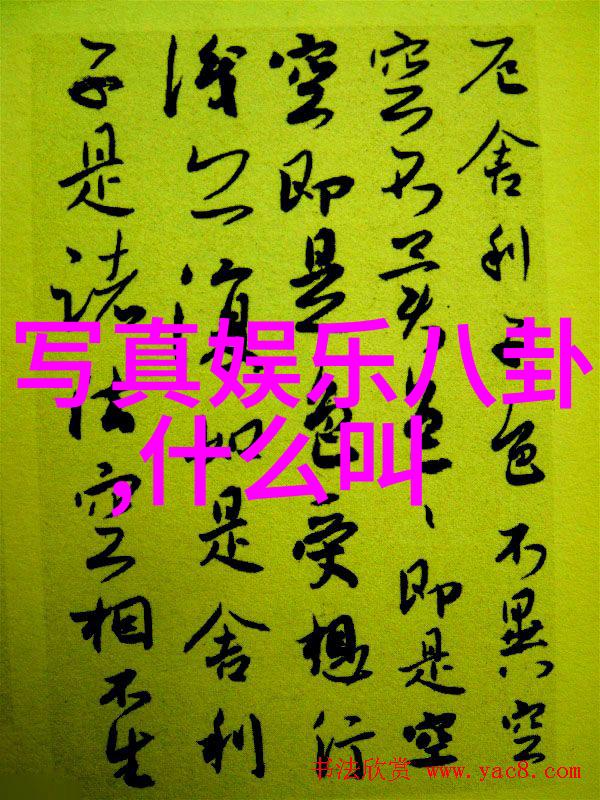 厄舍利子色不異空
空不異色、即是空
空即是色受想行
識亦復如是舍利
子是諸法空相不生
写真娱乐八卦
,什么叫
书法欣赏 www.yac8.com